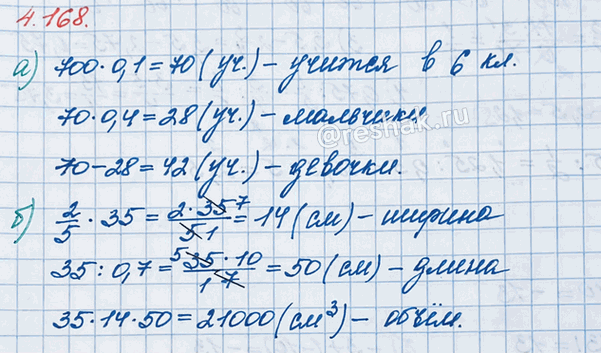 4.168.
а) 700·0,1=70 (уч.) – учится в 6 кл.
70·0,4=28 (уч.) – мальчики
@reshak.ru
70–28=42 (уч.) – девочки.
б) 2/5 · 35 = 2·35 7/5 1 = 14 (см) – ширина
35 : 0,7 = 5 35·10/1 7 = 50 (см) – длина
35·14·50=21000 (см³) – объём.